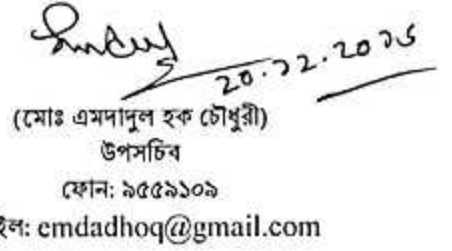 (মোঃ এমদাদুল হক চৌধুরী)
উপসচিব
ফোন: ৯৫৫৯১০৯
ইল: emdadhoq@gmail.com